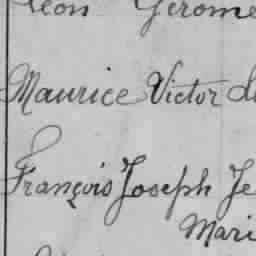 Léon Gérome
Maurice Victor
François Joseph Je
Mari